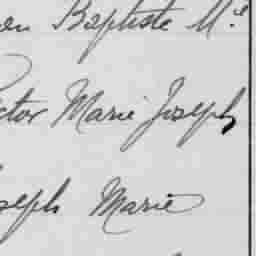 Baptiste M.el
ctor Marie Joseph
seph Marie